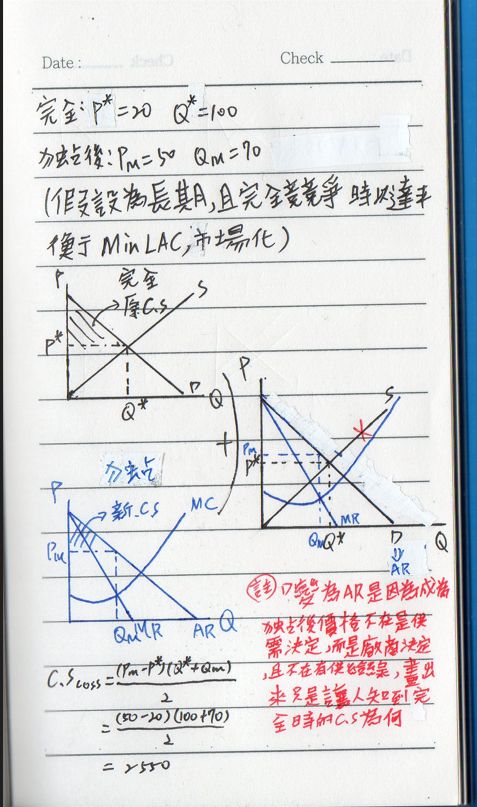 Date :
Check
完全: P*=20 Q*=100
勿虫占後: PM=50 QM=70
(假設為長期,且完全競爭時以達平
衡于 Min LAC, 市場化)
P
完全
原C.S
S
P*
Q*
D
Q
+
P
S
PM
P*
QM
Q*
MR
D
Q
⇓
AR
獨占
P
新C.S
MC
PM
QM
MR
AR
Q
註 D變為AR是因為成為
獨占後價格不在是供
需決定,而是廠商決定
,且不在有供給線,畫出
來只是讓人知到完
全時的C.S為何
C.S LOSS = (PM-P*)(Q*+QM) / 2
= (50-20)(100+70) / 2
= 2550